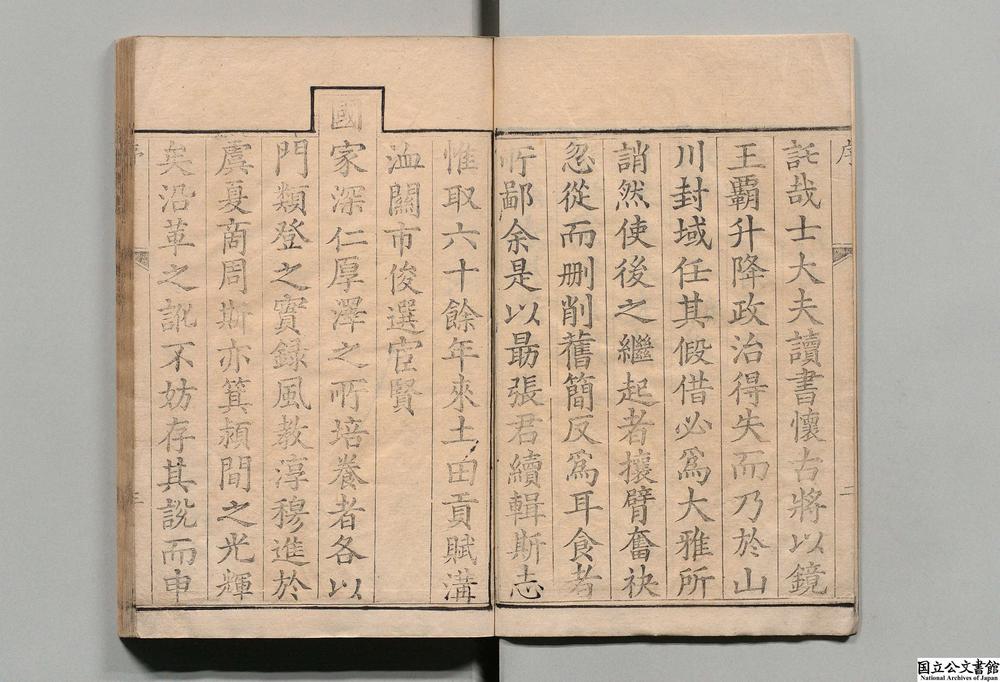 序
託哉士大夫讀書懷古將以鏡
王霸升降政治得失而乃於山
川封域任其假借必爲大雅所
誚然使後之繼起者攘臂奮袂
忽從而删削舊簡反爲耳食者
所鄙余是以勗張君續輯斯志
惟取六十餘年來土田貢賦溝
洫關市俊選宦賢
國家深仁厚澤之所培養者各以
門類登之實録風教淳穆進於
虞夏商周斯亦箕潁間之光輝
矣沿革之訛不妨存其說而申
国立公文書館
National Archives of Japan